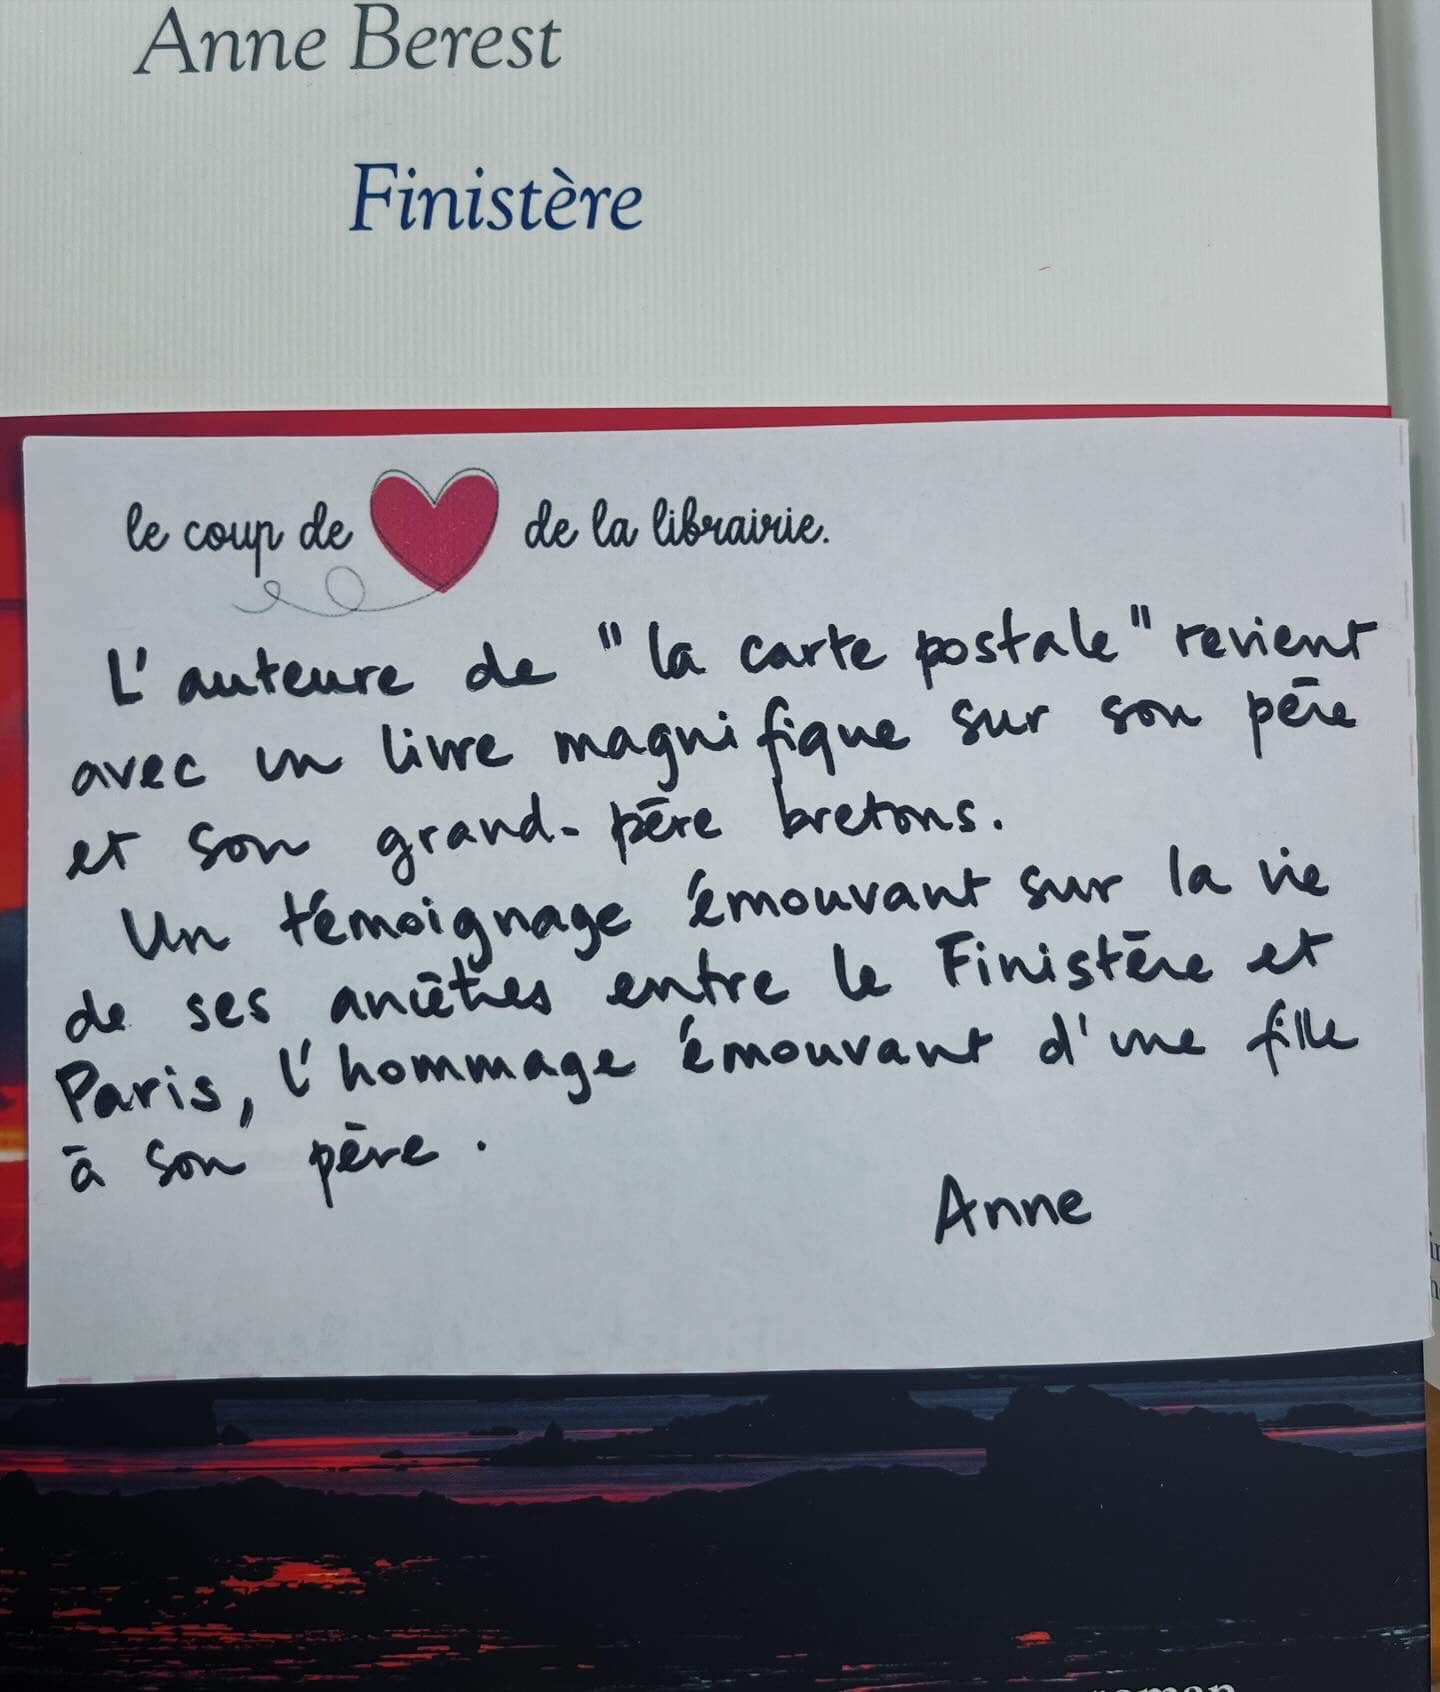 Anne Berest
Finistère
le coup de de la librairie.
L'auteure de "la carte postale" revient
avec un livre magnifique sur son père
et son grand-père bretons.
Un témoignage émouvant sur la vie
de ses ancêtres entre le Finistère et
Paris, l'hommage émouvant d'une fille
à son père.
Anne